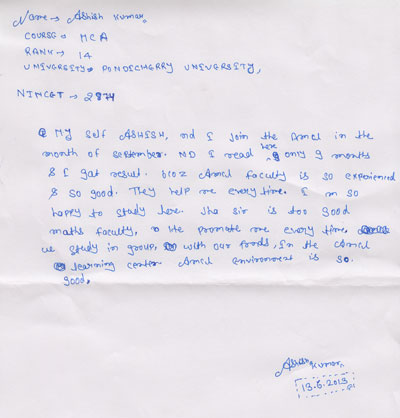 Name → Ashish Kumar.
COURSE → MCA
RANK → 14
UNIVERSITY → PONDICHERRY UNIVERSITY,
NIMCET → 2874
My self ASHISH, nd I join the Amcl in the
month of September. ND I read here only 9 months
& I get result. bcoz Amcl faculty is so experienced
& so good. They help me every time. I m so
happy to study here. Jha sir is too good
maths faculty, He promote me every time,
we study in group, with our frnds, In the Amcl
learning center. Amcl environment is so
good.
Ashish Kumar.
13.6.2013